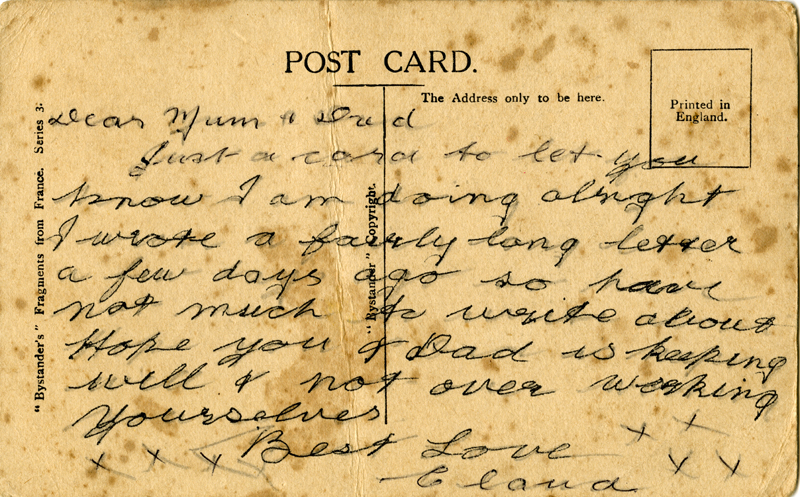 POST CARD.
The Address only to be here.
Printed in
England.
"Bystander's" Fragments from France. Series 3.
"Bystander" Copyright.
Dear Mum & Dad
Just a card to let you
know I am doing alright
I wrote a fairly long letter
a few days ago so have
not much to write about
Hope you & Dad is keeping
will & not over working
yourselves
Best Love
Claud
x x x x x x x